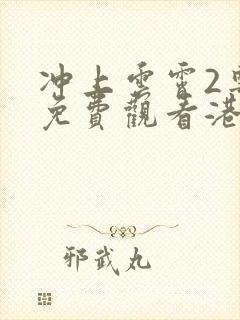 冲上云霄2粤
免費觀看港
邪武丸